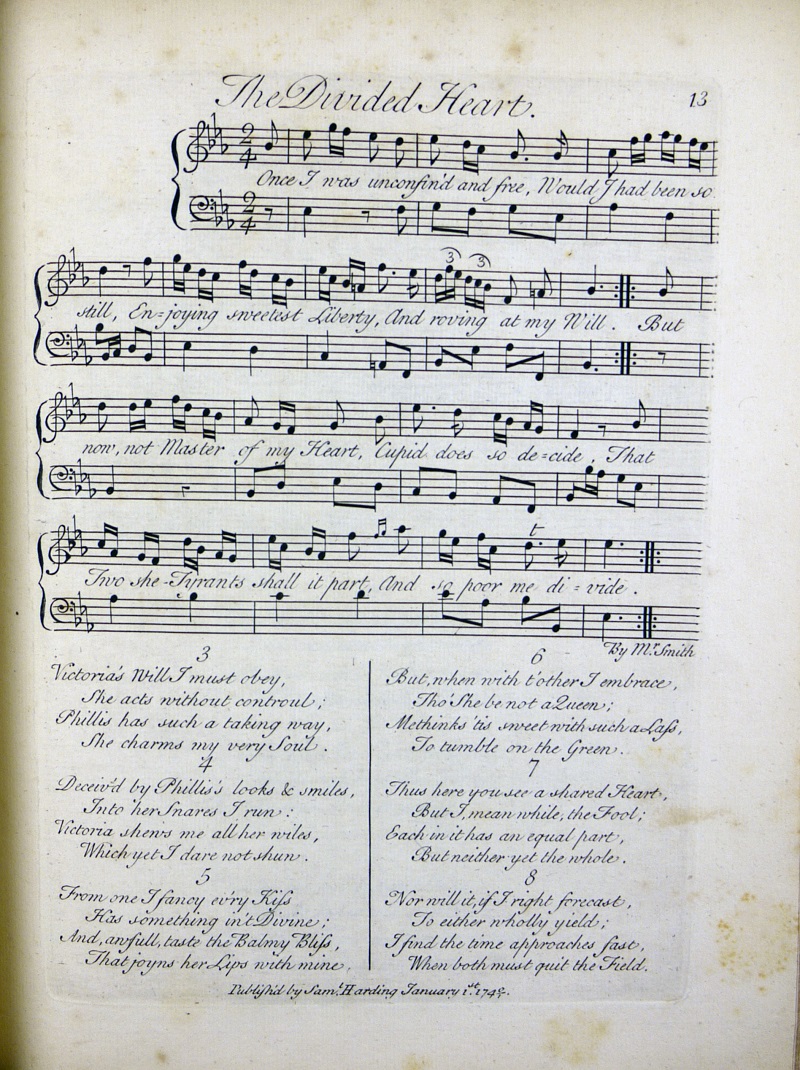 The Divided Heart. 13
Once I was unconfin'd and free, Would I had been so
still, En=joying sweetest Liberty, And roving at my Will. But
now, not Master of my Heart, Cupid does so de=cide, That
Two she-Tyrants shall it part, And so poor me di=vide.
By Mr. Smith
3
Victoria's Will I must obey,
She acts without controul;
Phillis has such a taking way,
She charms my very Soul.
4
Deceiv'd by Phillis's looks & smiles,
Into her Snares I run:
Victoria shews me all her wiles,
Which yet I dare not shun.
5
From one I fancy ev'ry Kiſs
Has something in't Divine;
And, awfull, taste the Balmy Bliſs,
That joyns her Lips with mine.
6
But, when with t'other I embrace,
Tho' She be not a Queen;
Methinks 'tis sweet with such a Laſs,
To tumble on the Green.
7
Thus here you see a shared Heart,
But I, mean while, the Fool;
Each in it has an equal part,
But neither yet the whole.
8
Nor will it, if I right forecast,
To either wholly yield;
I find the time approaches fast,
When both must quit the Field.
Publish'd by Sam: Harding January 1st